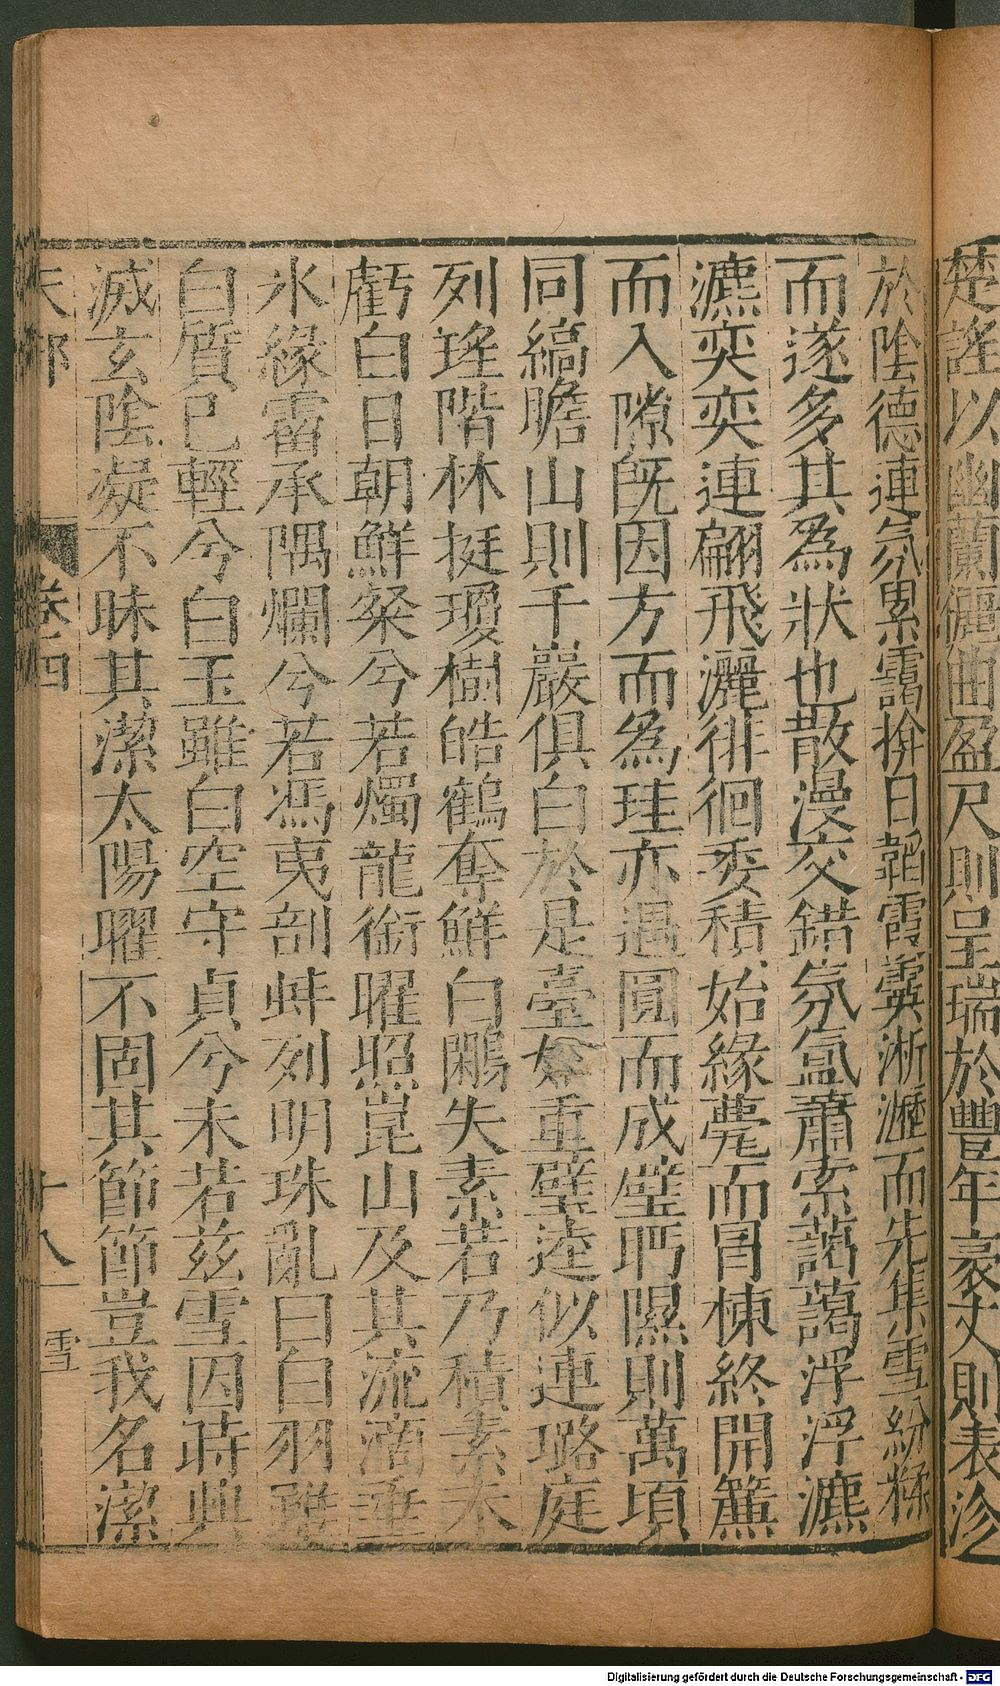 楚謠以幽蘭儷曲盈尺則呈瑞於豐年袤丈則表沴
於陰德連氛累靄揜日韜霞霙淅瀝而先集雪紛糅
而遂多其為狀也散漫交錯氛氳蕭索藹藹浮浮瀌
瀌奕奕連翩飛灑徘徊委積始緣甍而冐棟終開簾
而入隙旣因方而為珪亦遇圓而成璧眄隰則萬頃
同縞瞻山則千巖俱白於是臺如重璧逵似連璐庭
列瑤階林挺瓊樹皓鶴奪鮮白鷳失素若乃積素未
虧白日朝鮮粲兮若燭龍銜曜照崑山及其流滴垂
氷緣霤承隅爛兮若馮夷剖蚌列明珠亂曰白羽雖
白質已輕兮白玉雖白空守貞兮未若茲雪因時興
滅玄陰凝不昧其潔太陽曜不固其節節豈我名潔
天部 卷四 十八 雪
Digitalisierung gefördert durch die Deutsche Forschungsgemeinschaft - DFG